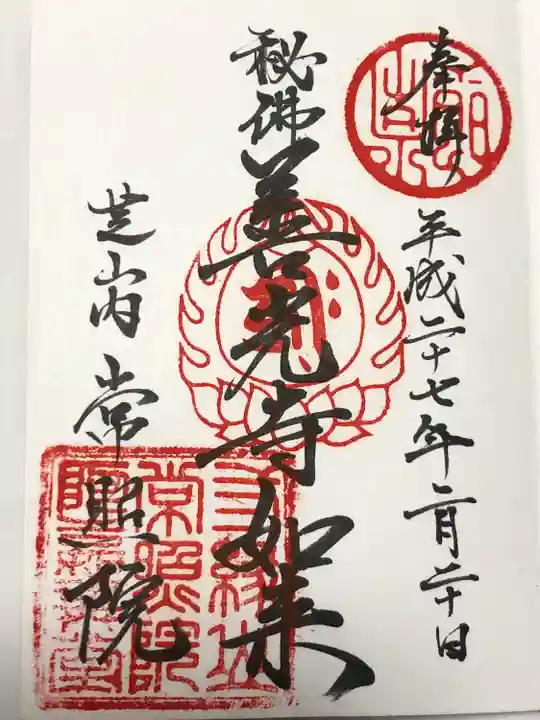 奉拝
平成二十七年二月二十日
秘佛善光寺如来
芝山内
常照院